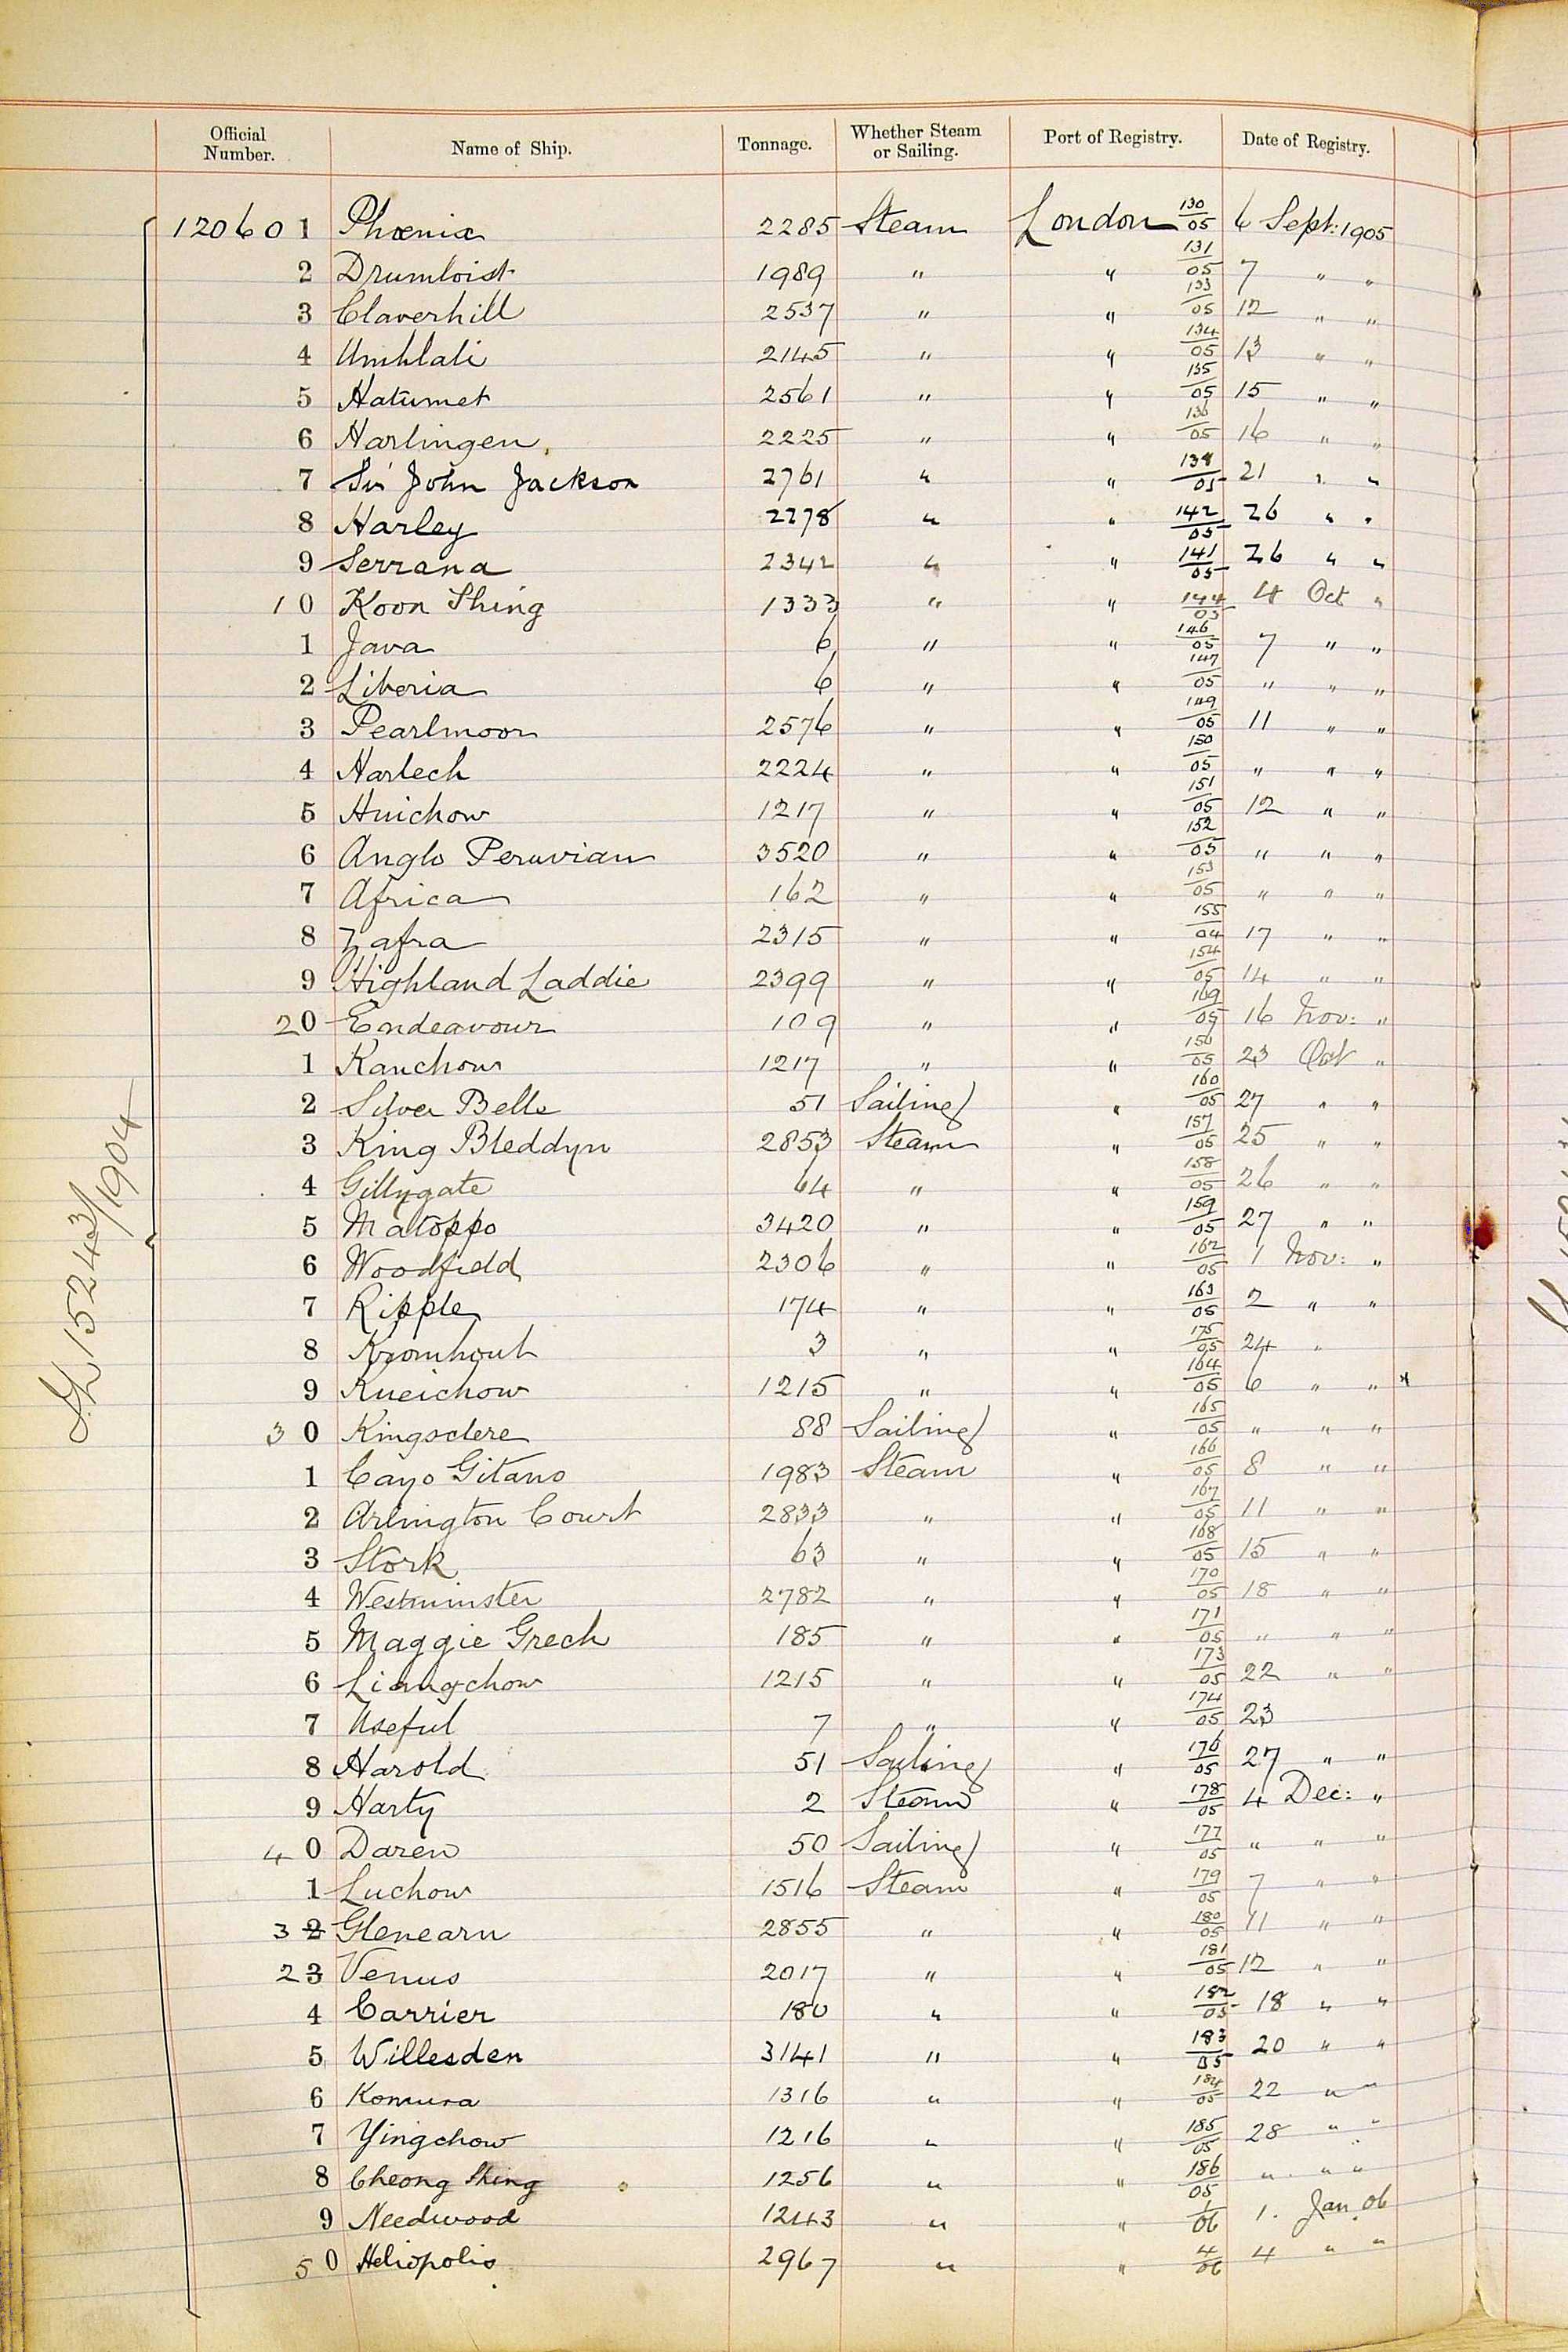 Official Number. Name of Ship. Tonnage. Whether Steam or Sailing. Port of Registry. Date of Registry.
120601 Phœnix 2285 Steam London 130/05 6 Sept: 1905
2 Drumloist 1989 " " 131/05 7 " "
3 Claverhill 2537 " " 133/05 12 " "
4 Umhlali 2145 " " 134/05 13 " "
5 Hatumet 2561 " " 135/05 15 " "
6 Harlingen 2225 " " 136/05 16 " "
7 Sir John Jackson 2761 " " 138/05 21 " "
8 Harley 2278 " " 142/05 26 " "
9 Serrana 2342 " " 141/05 26 " "
10 Koon Shing 1333 " " 144/05 4 Oct "
1 Java 6 " " 146/05 7 " "
2 Liberia 6 " " 147/05 " " "
3 Pearlmoor 2576 " " 149/05 11 " "
4 Harlech 2224 " " 150/05 " " "
5 Huichow 1217 " " 151/05 12 " "
6 Anglo Peruvian 3520 " " 152/05 " " "
7 Africa 162 " " 153/05 " " "
8 Zafra 2315 " " 155/04 17 " "
9 Highland Laddie 2399 " " 154/05 14 " "
20 Endeavour 109 " " 169/05 16 Nov: "
1 Kanchow 1217 " " 156/05 23 Oct "
2 Silver Belle 51 Sailing " 160/05 27 " "
3 King Bleddyn 2853 Steam " 157/05 25 " "
4 Gillygate 64 " " 158/05 26 " "
5 Matoppo 3420 " " 159/05 27 " "
6 Woodfield 2306 " " 162/05 1 Nov: "
7 Ripple 174 " " 163/05 2 " "
8 Kromhout 3 " " 175/05 24 "
9 Kueichow 1215 " " 164/05 6 " " x
30 Kingsclere 88 Sailing " 165/05 " " "
1 Cayo Gitano 1983 Steam " 166/05 8 " "
2 Arlington Court 2833 " " 167/05 11 " "
3 Stork 63 " " 168/05 15 " "
4 Westminster 2782 " " 170/05 18 " "
5 Maggie Grech 185 " " 171/05 " " "
6 Liangchow 1215 " " 173/05 22 " "
7 Useful 7 " " 174/05 23
8 Harold 51 Sailing " 176/05 27 " "
9 Harty 2 Steam " 178/05 4 Dec: "
40 Daren 50 Sailing " 177/05 " " "
1 Luchow 1516 Steam " 179/05 7 " "
3 2 Glenearn 2855 " " 180/05 11 " "
2 3 Venus 2017 " " 181/05 12 " "
4 Carrier 180 " " 182/05 18 " "
5 Willesden 3141 " " 183/05 20 " "
6 Komura 1316 " " 184/05 22 " "
7 Yingchow 1216 " " 185/05 28 " "
8 Cheong Shing 1256 " " 186/05 " " "
9 Needwood 1243 " " 1/06 1. Jan 06
50 Heliopolis 2967 " " 4/06 4 " "
15243/1904